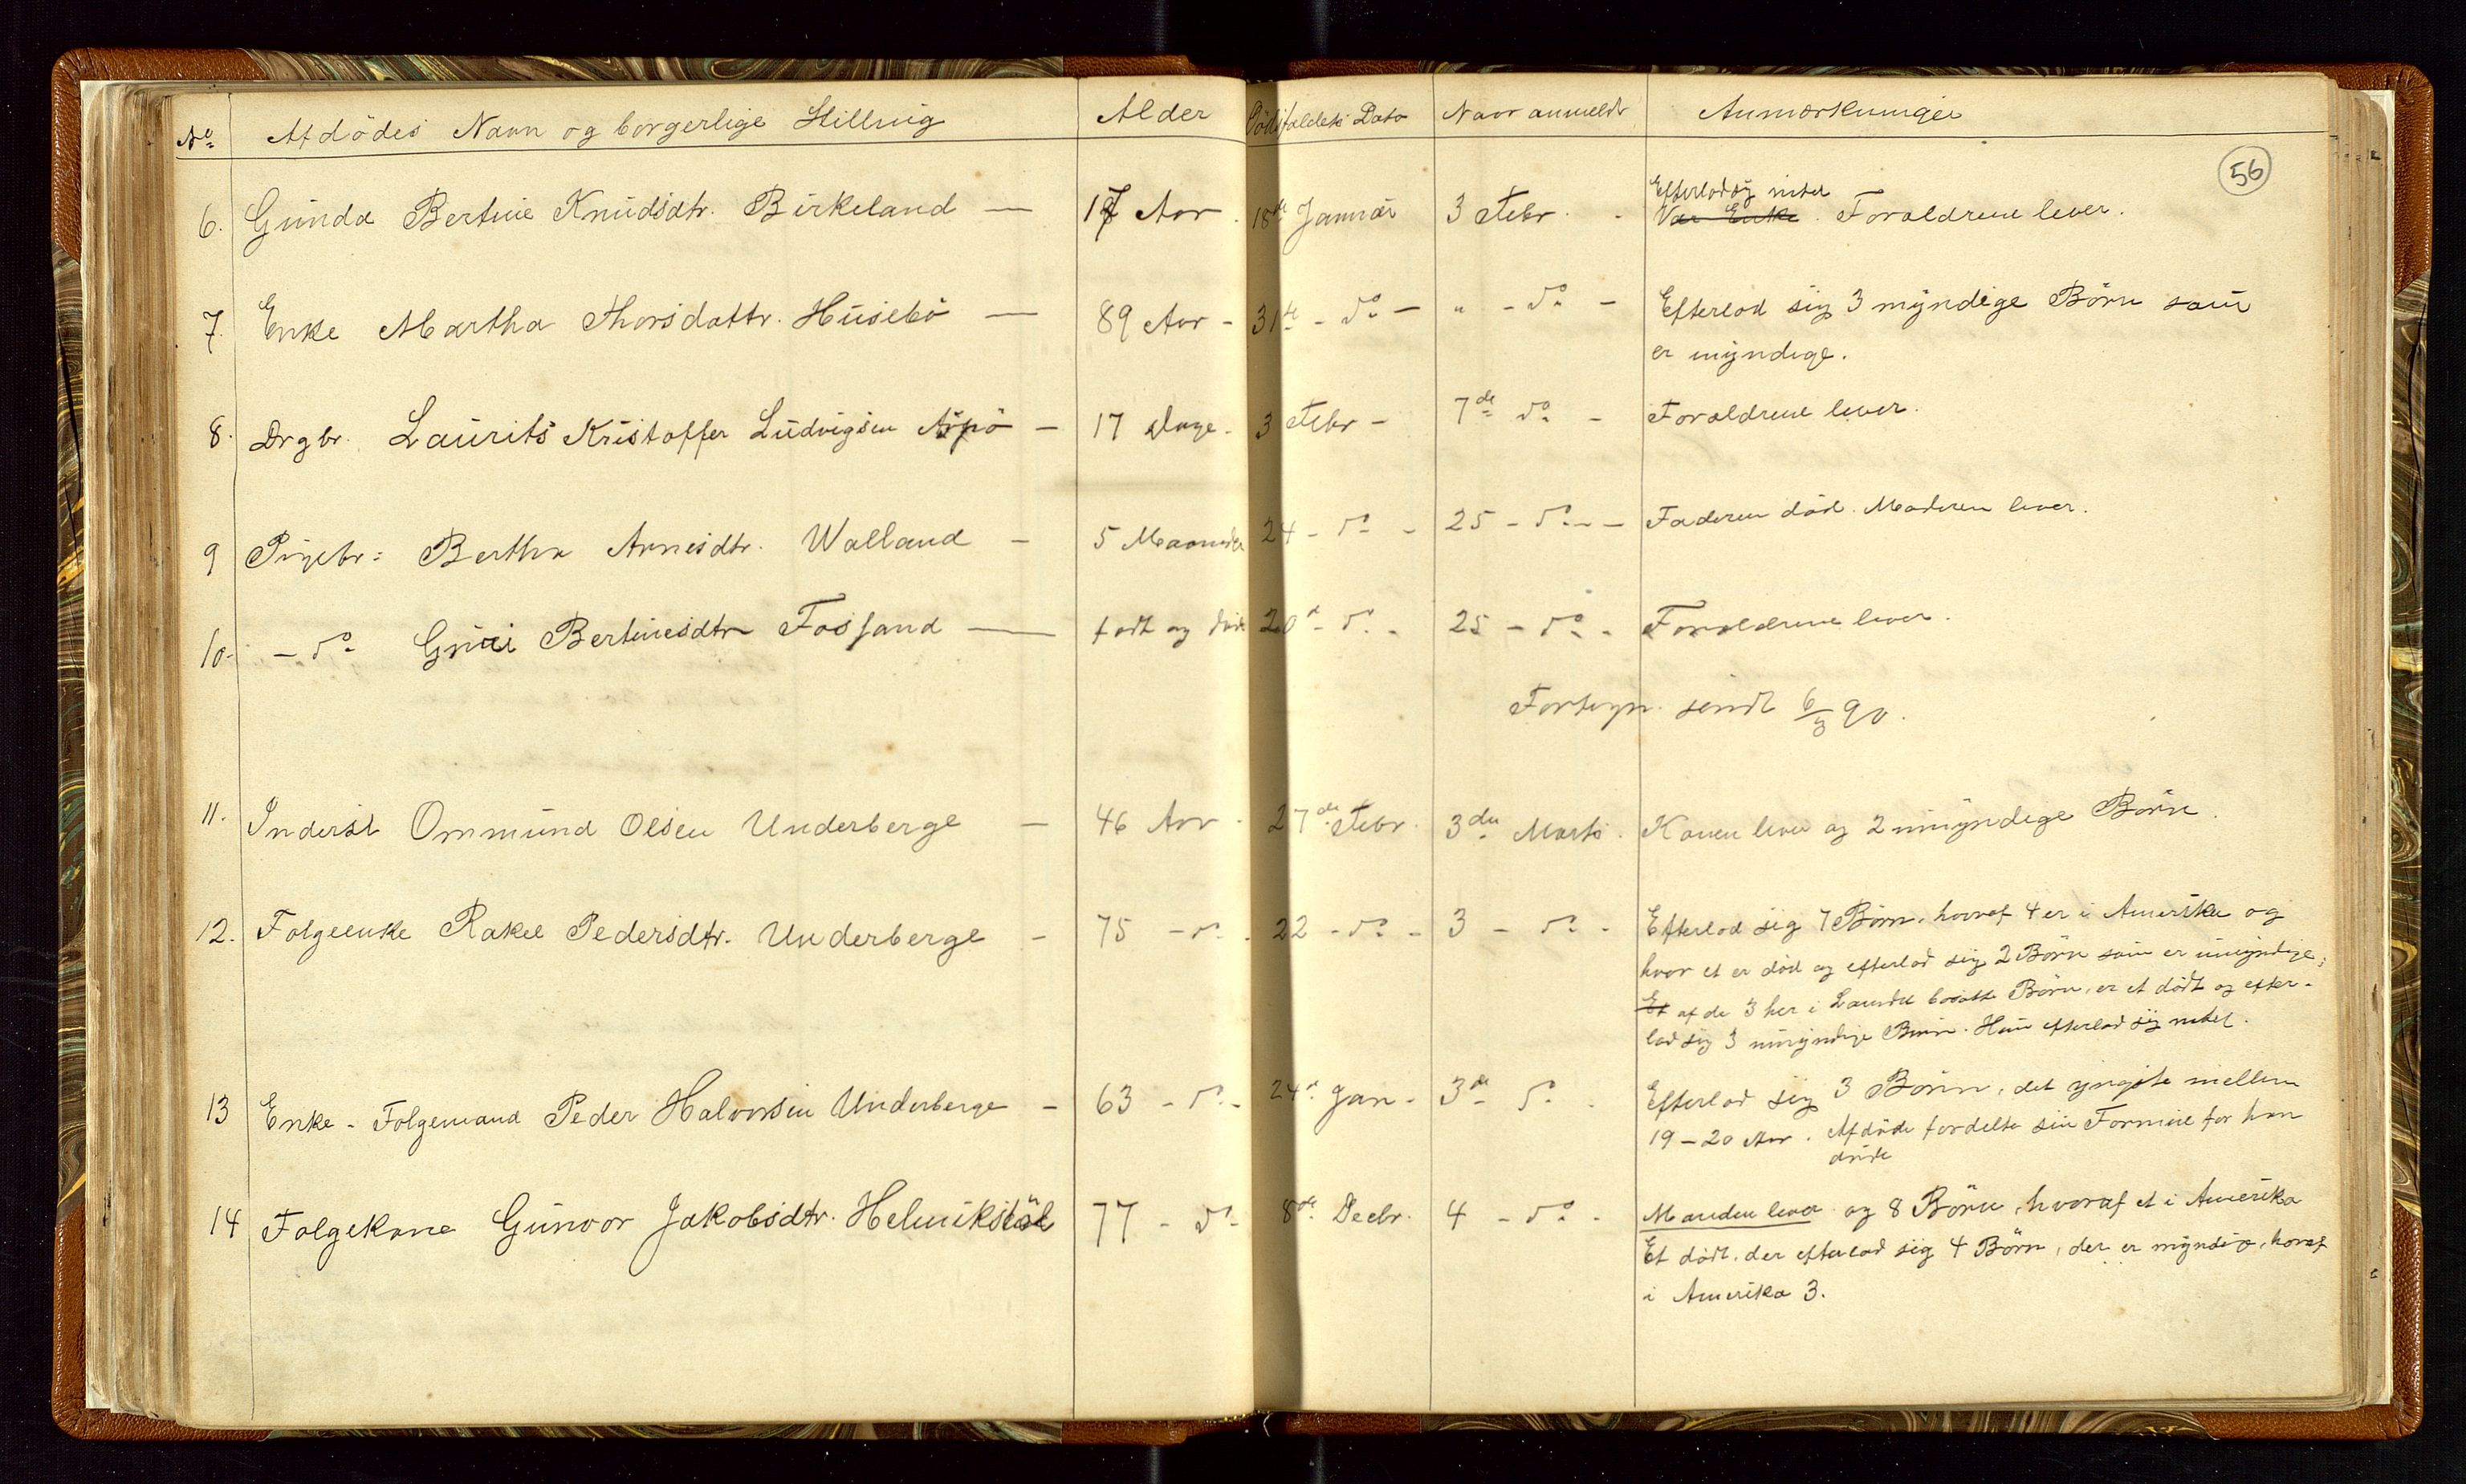 No Afdödes Navn og borgerlige Stilling Alder Dödsfaldets Dato Naar anmeldt Anmærkninger
56
Efterlod sig intet
6. Gunda Bertine Knudsdtr. Birkeland — 17 Aar. 18de Januar 3 Febr. - Var Enke. Forældrene lever.
7. Enke Martha Thorsdattr. Husebö — 89 Aar - 31te - do - " - do - Efterlod sig 3 myndige Börn som
er myndige.
8. Drgbr. Laurits Kristoffer Ludvigsen - 17 Dage - 3 Febr - 7de do - Forældrene lever.
9 Pigebr: Bertha Arnesdtr. Walland - 5 Maaneder 24 - do - 25 - do - - Faderen död. Moderen lever.
10. - do Guri Bertinesdtr Fossand — födt og död 20d - do - 25 - do - Forældrene lever.
Fortegn. sendt 6/3 90.
11. Inderst Ommund Olsen Underberge - 46 Aar. 27de Febr. 3die Marts. Konen lever og 2 umyndige Börn.
12. Folgeenke Rakel Pedersdtr. Underberge - 75 - do - 22 - do - 3 - do - Efterlod sig 7 Börn, hvoraf 4 er i Amerika og
hvor et er död og efterlod sig 2 Börn som er umyndige;
Et af de 3 her i Landet bosatte Börn, er et dödt og efter-
lod sig 3 umyndige Börn. Hun efterlod sig intet.
13 Enke - Folgemand Peder Halvorsen Underberge - 63 - do - 24d Jan - 3de do - Efterlod sig 3 Börn, det yngste mellem
19 - 20 Aar. Afdöde fordelte sin Formue för han
döde
14 Folgekone Gunvor Jakobsdtr. Helmikstöl 77 - do - 8de Decbr. 4 - do - Manden lever og 8 Börn, hvoraf et i Amerika
Et dödt, der efterlod sig 4 Börn, der er myndige, hvoraf
i Amerika 3.